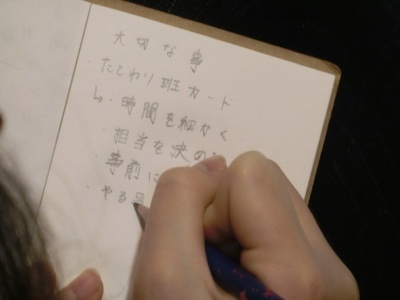 大切な事
・たてわり班カード
↳・時間を細かく
・担当を決め
・事前に
・やる